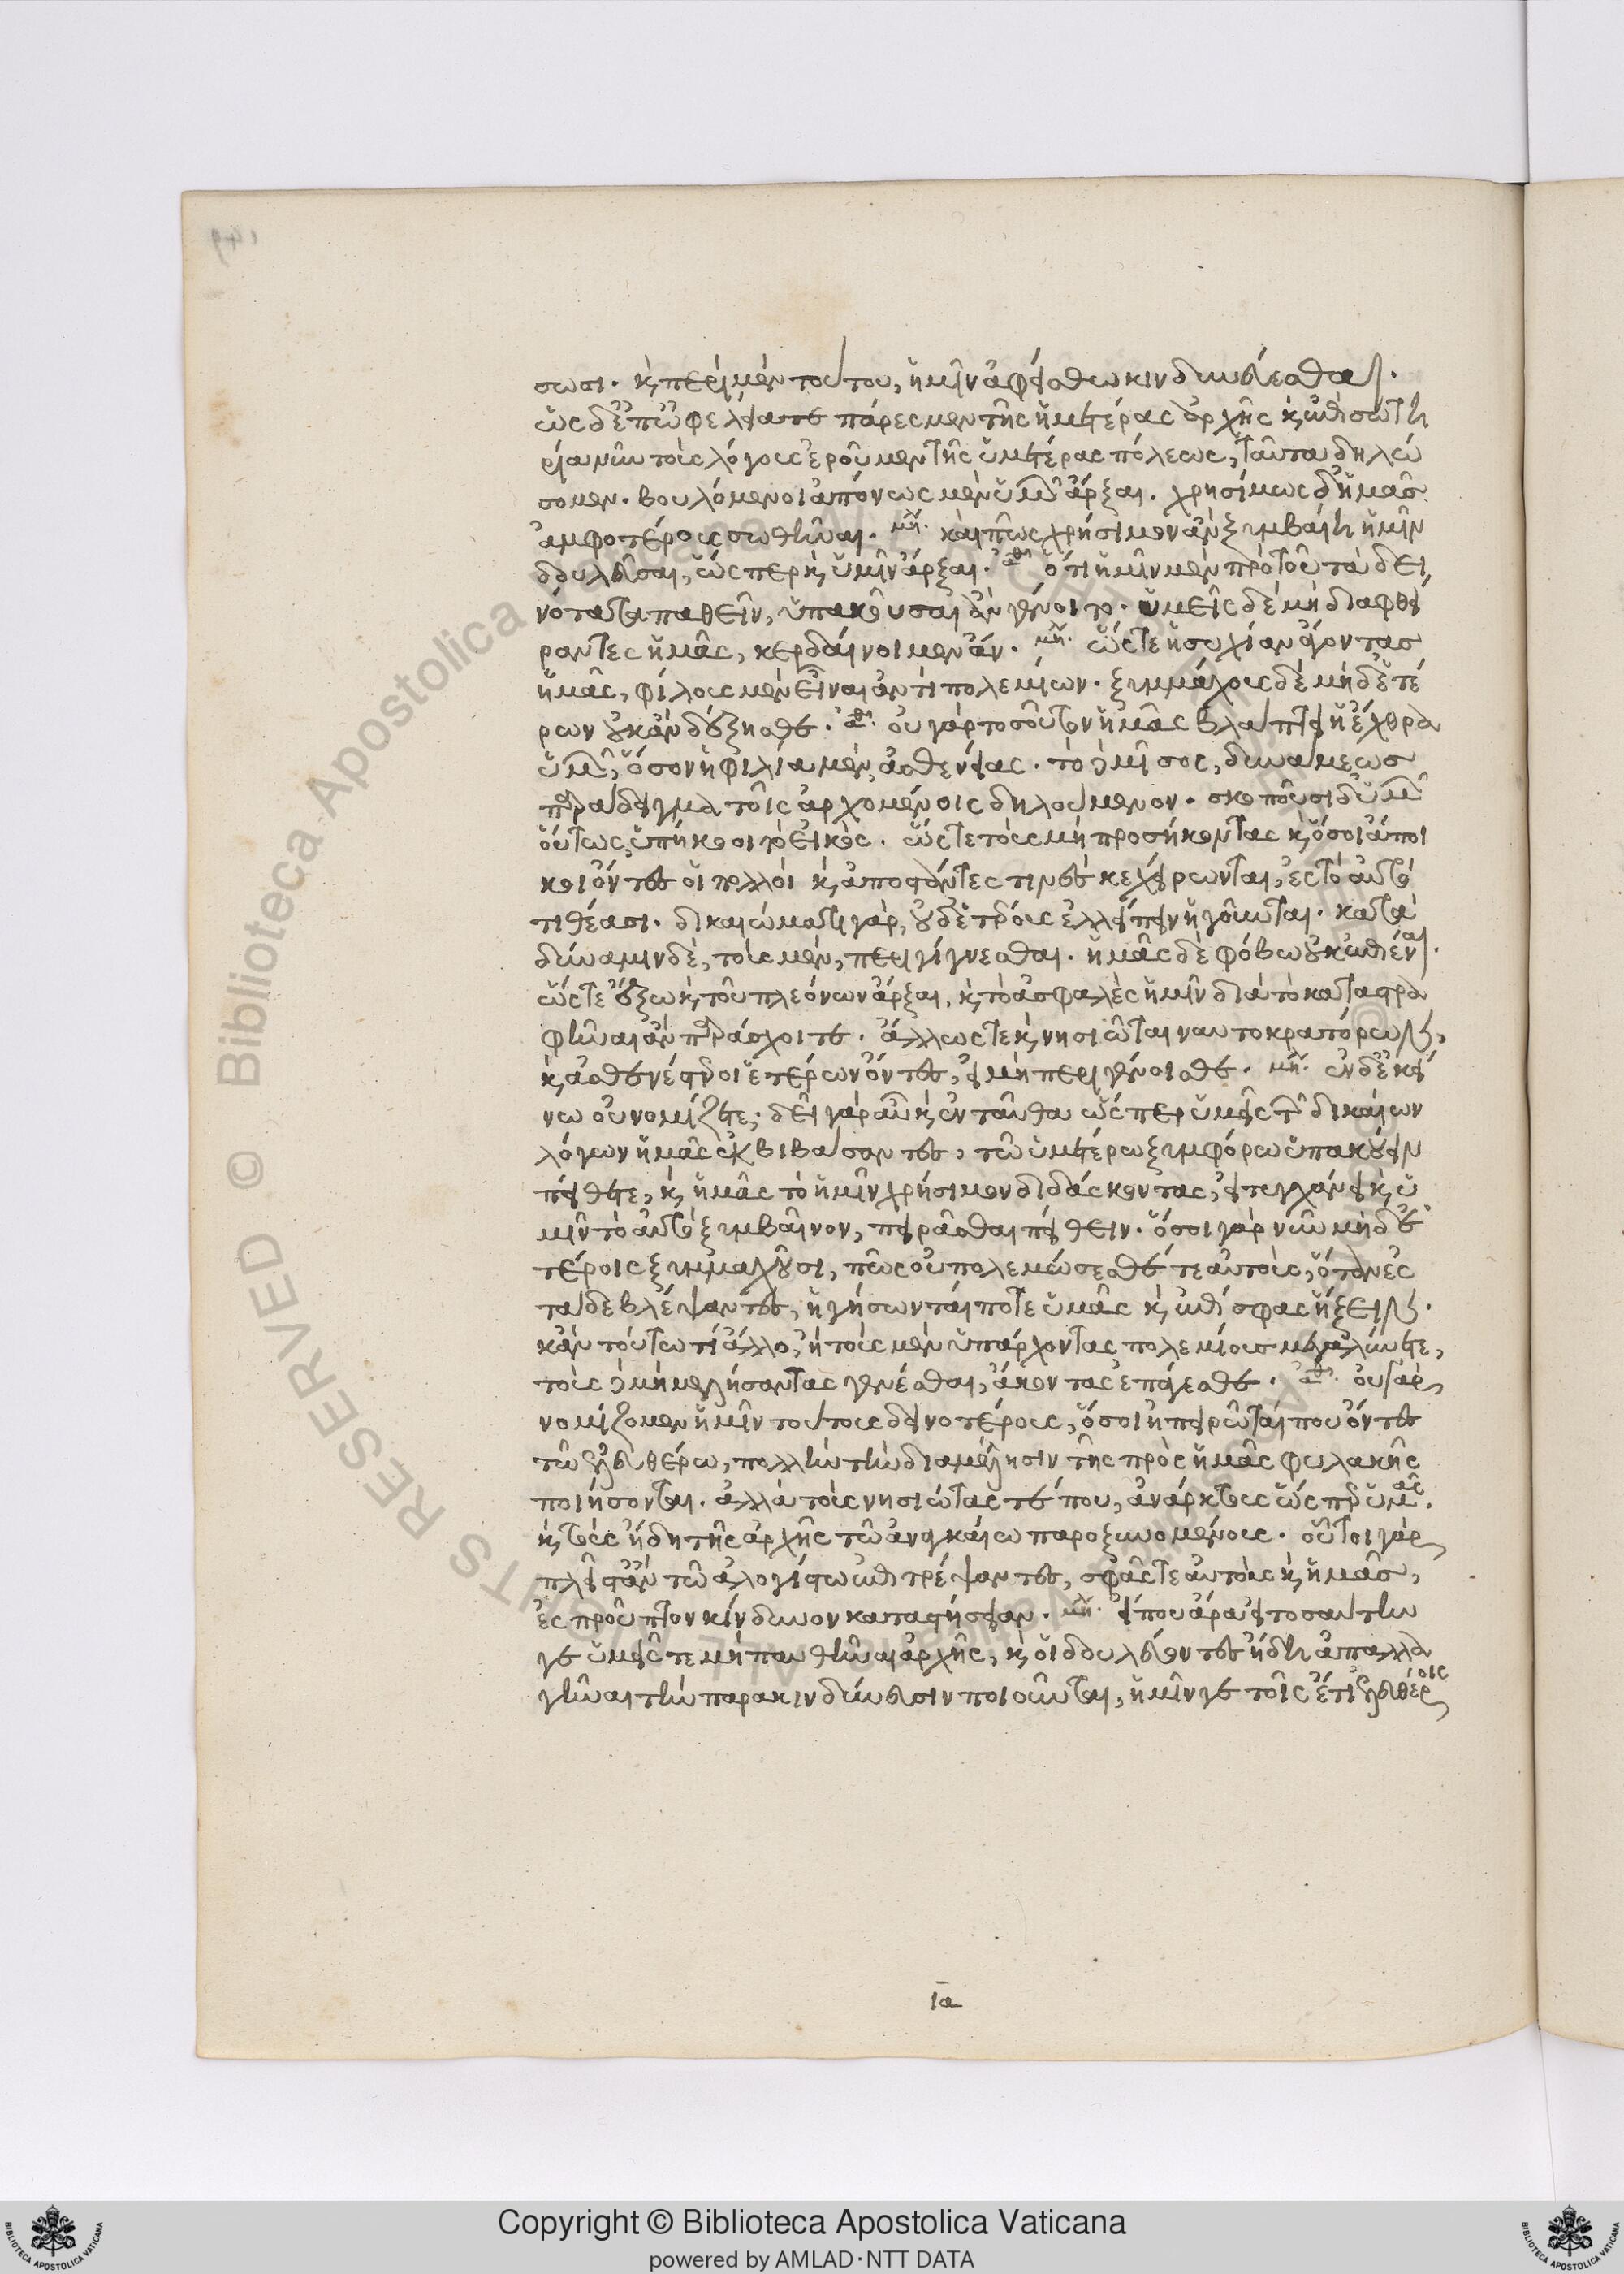 σωσι· καὶ περὶ μὲν τούτου, ἡμῖν ἀφείσθω κινδυνεύεσθαι.
ὡς δὲ ἐπ' ὠφελείᾳ τε πάρεσμεν τῆς ἡμετέρας ἀρχῆς καὶ ἐπὶ σωτη
ρίᾳ νῦν τοὺς λόγους ἐροῦμεν τῆς ὑμετέρας πόλεως, ταῦτα δηλώ
σομεν. βουλόμενοι ἀπόνως μὲν ὑμῶν ἄρξαι. χρησίμως δ' ἡμᾶς
ἀμφοτέροις σωθῆναι. μη. καὶ πῶς χρήσιμον ἂν ξυμβαίη ἡμῖν
δουλεῦσαι, ὥσπερ καὶ ὑμῖν ἄρξαι. αθ. ὅτι ἡμῖν μὲν πρὸ τοῦ τὰ δει
νότατα παθεῖν, ὑπακοῦσαι ἂν γένοιτο. ὑμεῖς δὲ μὴ διαφθεί
ραντες ἡμᾶς, κερδαίνοιμεν ἄν. μη. ὥστε ἡσυχίαν ἄγοντας
ἡμᾶς, φίλους μὲν εἶναι ἀντὶ πολεμίων. ξυμμάχους δὲ μηδετέ
ρων οὐκ ἂν δέξησθε. αθ. οὐ γὰρ τοσοῦτον ἡμᾶς βλάπτει ἡ ἔχθρα
ὑμῶν, ὅσον ἡ φιλία μὲν, ἀσθενείας. τὸ δὲ μῖσος, δυνάμεως
παράδειγμα τοῖς ἀρχομένοις δηλούμενον. σκοποῦσι δ' ὑμῶν
οὕτως ὑπήκοοι τὸ εἰκός. ὥστε τοὺς μὴ προσήκοντας καὶ ὅσοι ἄποι
κοι ὄντες οἱ πολλοὶ καὶ ἀποστάντες τινὲς κεχείρωνται, ἐς τὸ αὐτὸ
τιθέασι. δικαιώματι γὰρ, οὐδετέρους ἐλλείπειν ἡγοῦνται. κατὰ
δύναμιν δὲ, τοὺς μὲν, περιγίγνεσθαι. ἡμᾶς δὲ φόβῳ οὐκ ἐπιέναι.
ὥστε ἔξω καὶ τοῦ πλεόνων ἄρξαι, καὶ τὸ ἀσφαλὲς ἡμῖν διὰ τὸ καταστρα
φῆναι ἂν παράσχοιτε. ἄλλως τε καὶ νησιῶται ναυτοκρατόρων,
καὶ ἀσθενέστεροι ἑτέρων ὄντες, εἰ μὴ περιγένοισθε. μη. ἐν δ' ἐκεί
νῳ οὐ νομίζετε; δεῖ γὰρ αὖ καὶ ἐνταῦθα ὥσπερ ὑμεῖς τῶν δικαίων
λόγων ἡμᾶς ἐκβιβάσαντες, τῷ ὑμετέρῳ ξυμφόρῳ ὑπακούειν
πείθετε, καὶ ἡμᾶς τὸ ἡμῖν χρήσιμον διδάσκοντας, εἰ τυγχάνει καὶ ὑ
μῖν τὸ αὐτὸ ξυμβαῖνον, πειρᾶσθαι πείθειν. ὅσοι γὰρ νῦν μηδε
τέροις ξυμμαχοῦσι, πῶς οὐ πολεμώσεσθε τε αὐτοὺς, ὅταν ἐς
τάδε βλέψαντες, ἡγήσωνταί ποτε ὑμᾶς καὶ ἐπὶ σφας ἥξειν.
κἀν τούτῳ τί ἄλλο, ἢ τοὺς μὲν ὑπάρχοντας πολεμίους μεγαλύνετε,
τοὺς δὲ μὴ μελλήσαντας γενέσθαι, ἄκοντας ἐπάγεσθε. αθ. οὐ γὰρ
νομίζομεν ἡμῖν τούτους δεινοτέρους, ὅσοι ἠπειρῶταί που ὄντες
τῷ ἐλευθέρῳ, πολλὴν τὴν διαμέλλησιν τῆς πρὸς ἡμᾶς φυλακῆς
ποιήσονται. ἀλλὰ τοὺς νησιώτας τέ που, ἀνάρκτους ὥσπερ ὑμᾶς.
καὶ τοὺς ἤδη τῆς ἀρχῆς τῷ ἀναγκαίῳ παροξυνομένους. οὗτοι γὰρ
πλεῖστ' ἂν τῷ ἀλογίστῳ ἐπιτρέψαντες, σφᾶς τε αὐτοὺς καὶ ἡμᾶς,
ἐς προῦπτον κίνδυνον καταστήσειαν. μη. εἴπου ἄρα εἰ τοσαύτην
γε ὑμεῖς τε μὴ παυθῆναι ἀρχῆς, καὶ οἱ δουλεύοντες ἤδη ἀπαλλα
γῆναι τὴν παρακινδύνευσιν ποιοῦνται, ἡμῖν γε τοῖς ἔτι ἐλευθέροις
ια